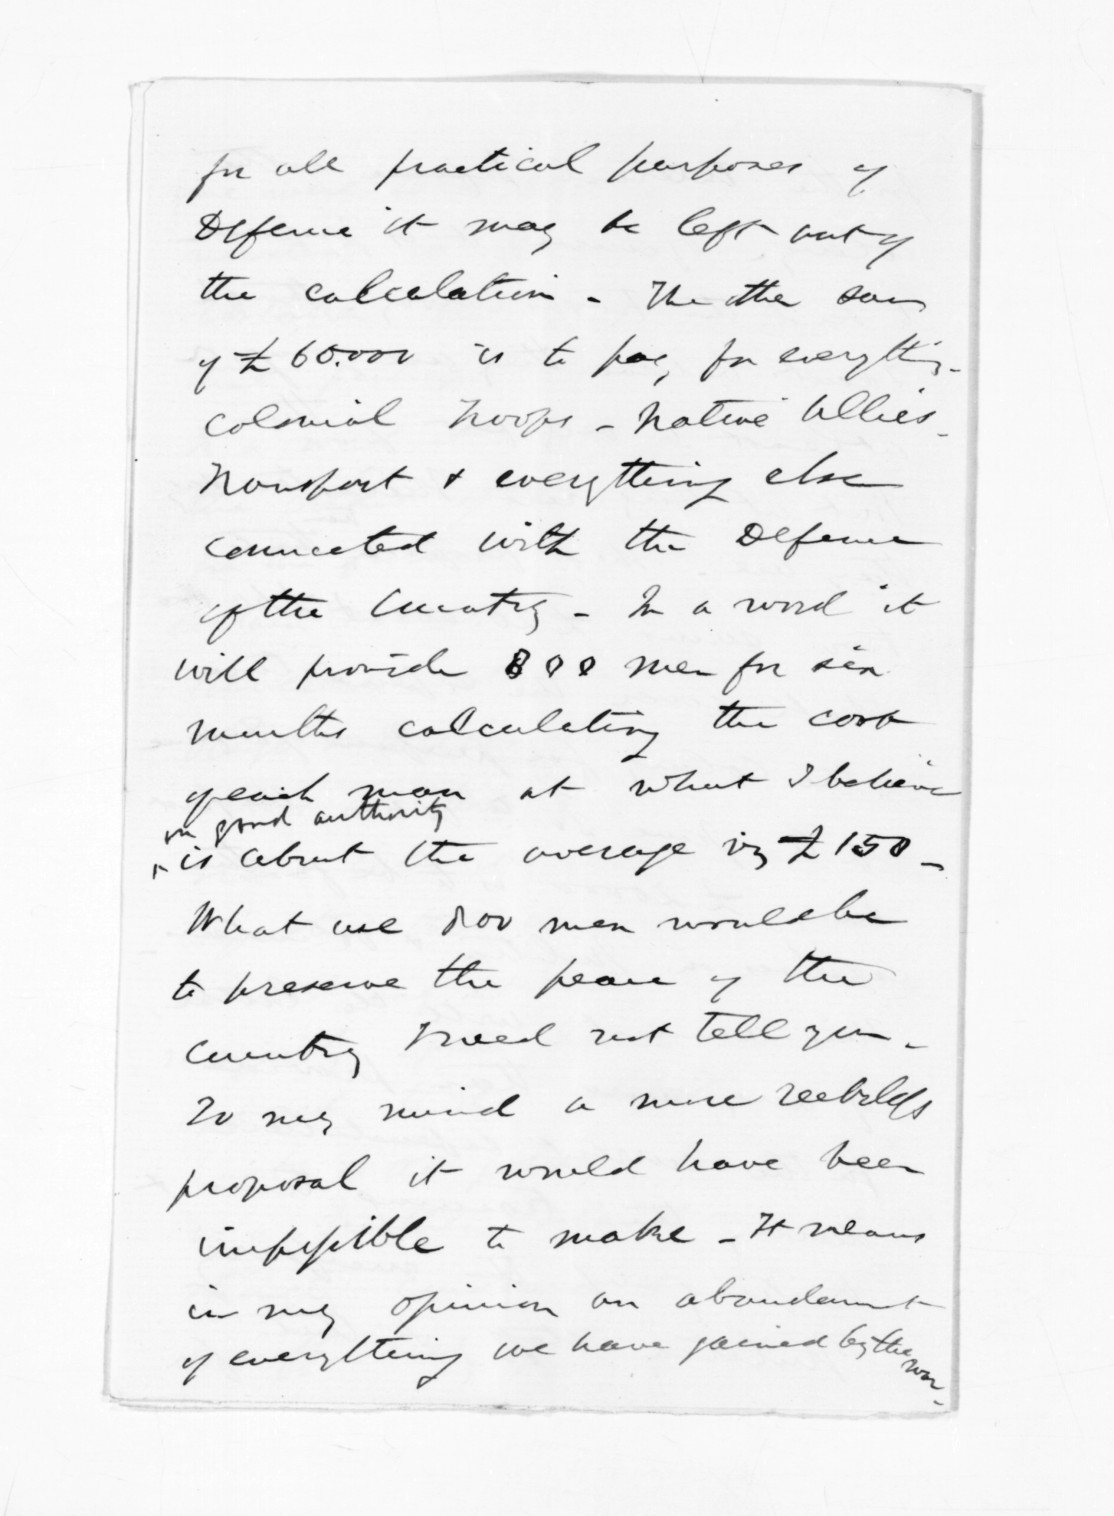 for all practical purposes of
Defence it may be left out of
the calculation - The other sum
of £60.000 is to pay for everything -
Colonial Troops - Native Allies -
Transport & everything else
connected with the Defence
of the Country - In a word it
will provide 800 men for six
months calculating the cost
of each man at what I believe
on good authority
is about the average viz £150 -
What use 800 men would be
to preserve the peace of the
Country I need not tell you -
To my mind a more reckless
proposal it would have been
impossible to make - It means
in my opinion an abandamt
of everything we have gained by the
war -